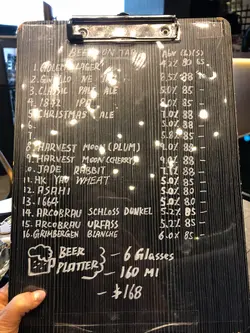 BEERS ON TAP ABV (%) ($)
1. GOLDEN LAGER 4.2% 85 -
2. GWEILO NE IPA 85 -
3. CLASSIC PALE ALE 85 -
4. 1842 IPA 85 -
5. CHRISTMAS ALE 7.0% 85 -
6.
7.
8. HARVEST MOON (PLUM) 88 -
9. HARVEST MOON (CHERRY) 88 -
10. JADE RABBIT 85 -
11. HK YAU WHEAT 5.0% 85 -
12. ASAHI 5.0% 85 -
13. 1664 5.0% 85 -
14. ARCOBRAU SCHLOSS DUNKEL 5.2% 85 -
15. ARCOBRAU URFASS 5.2% 85 -
16. GRIMBERGEN BLANCHE 6.0% 85 -
BEER PLATTERS
- 6 Glasses
- 160 Ml
- $168